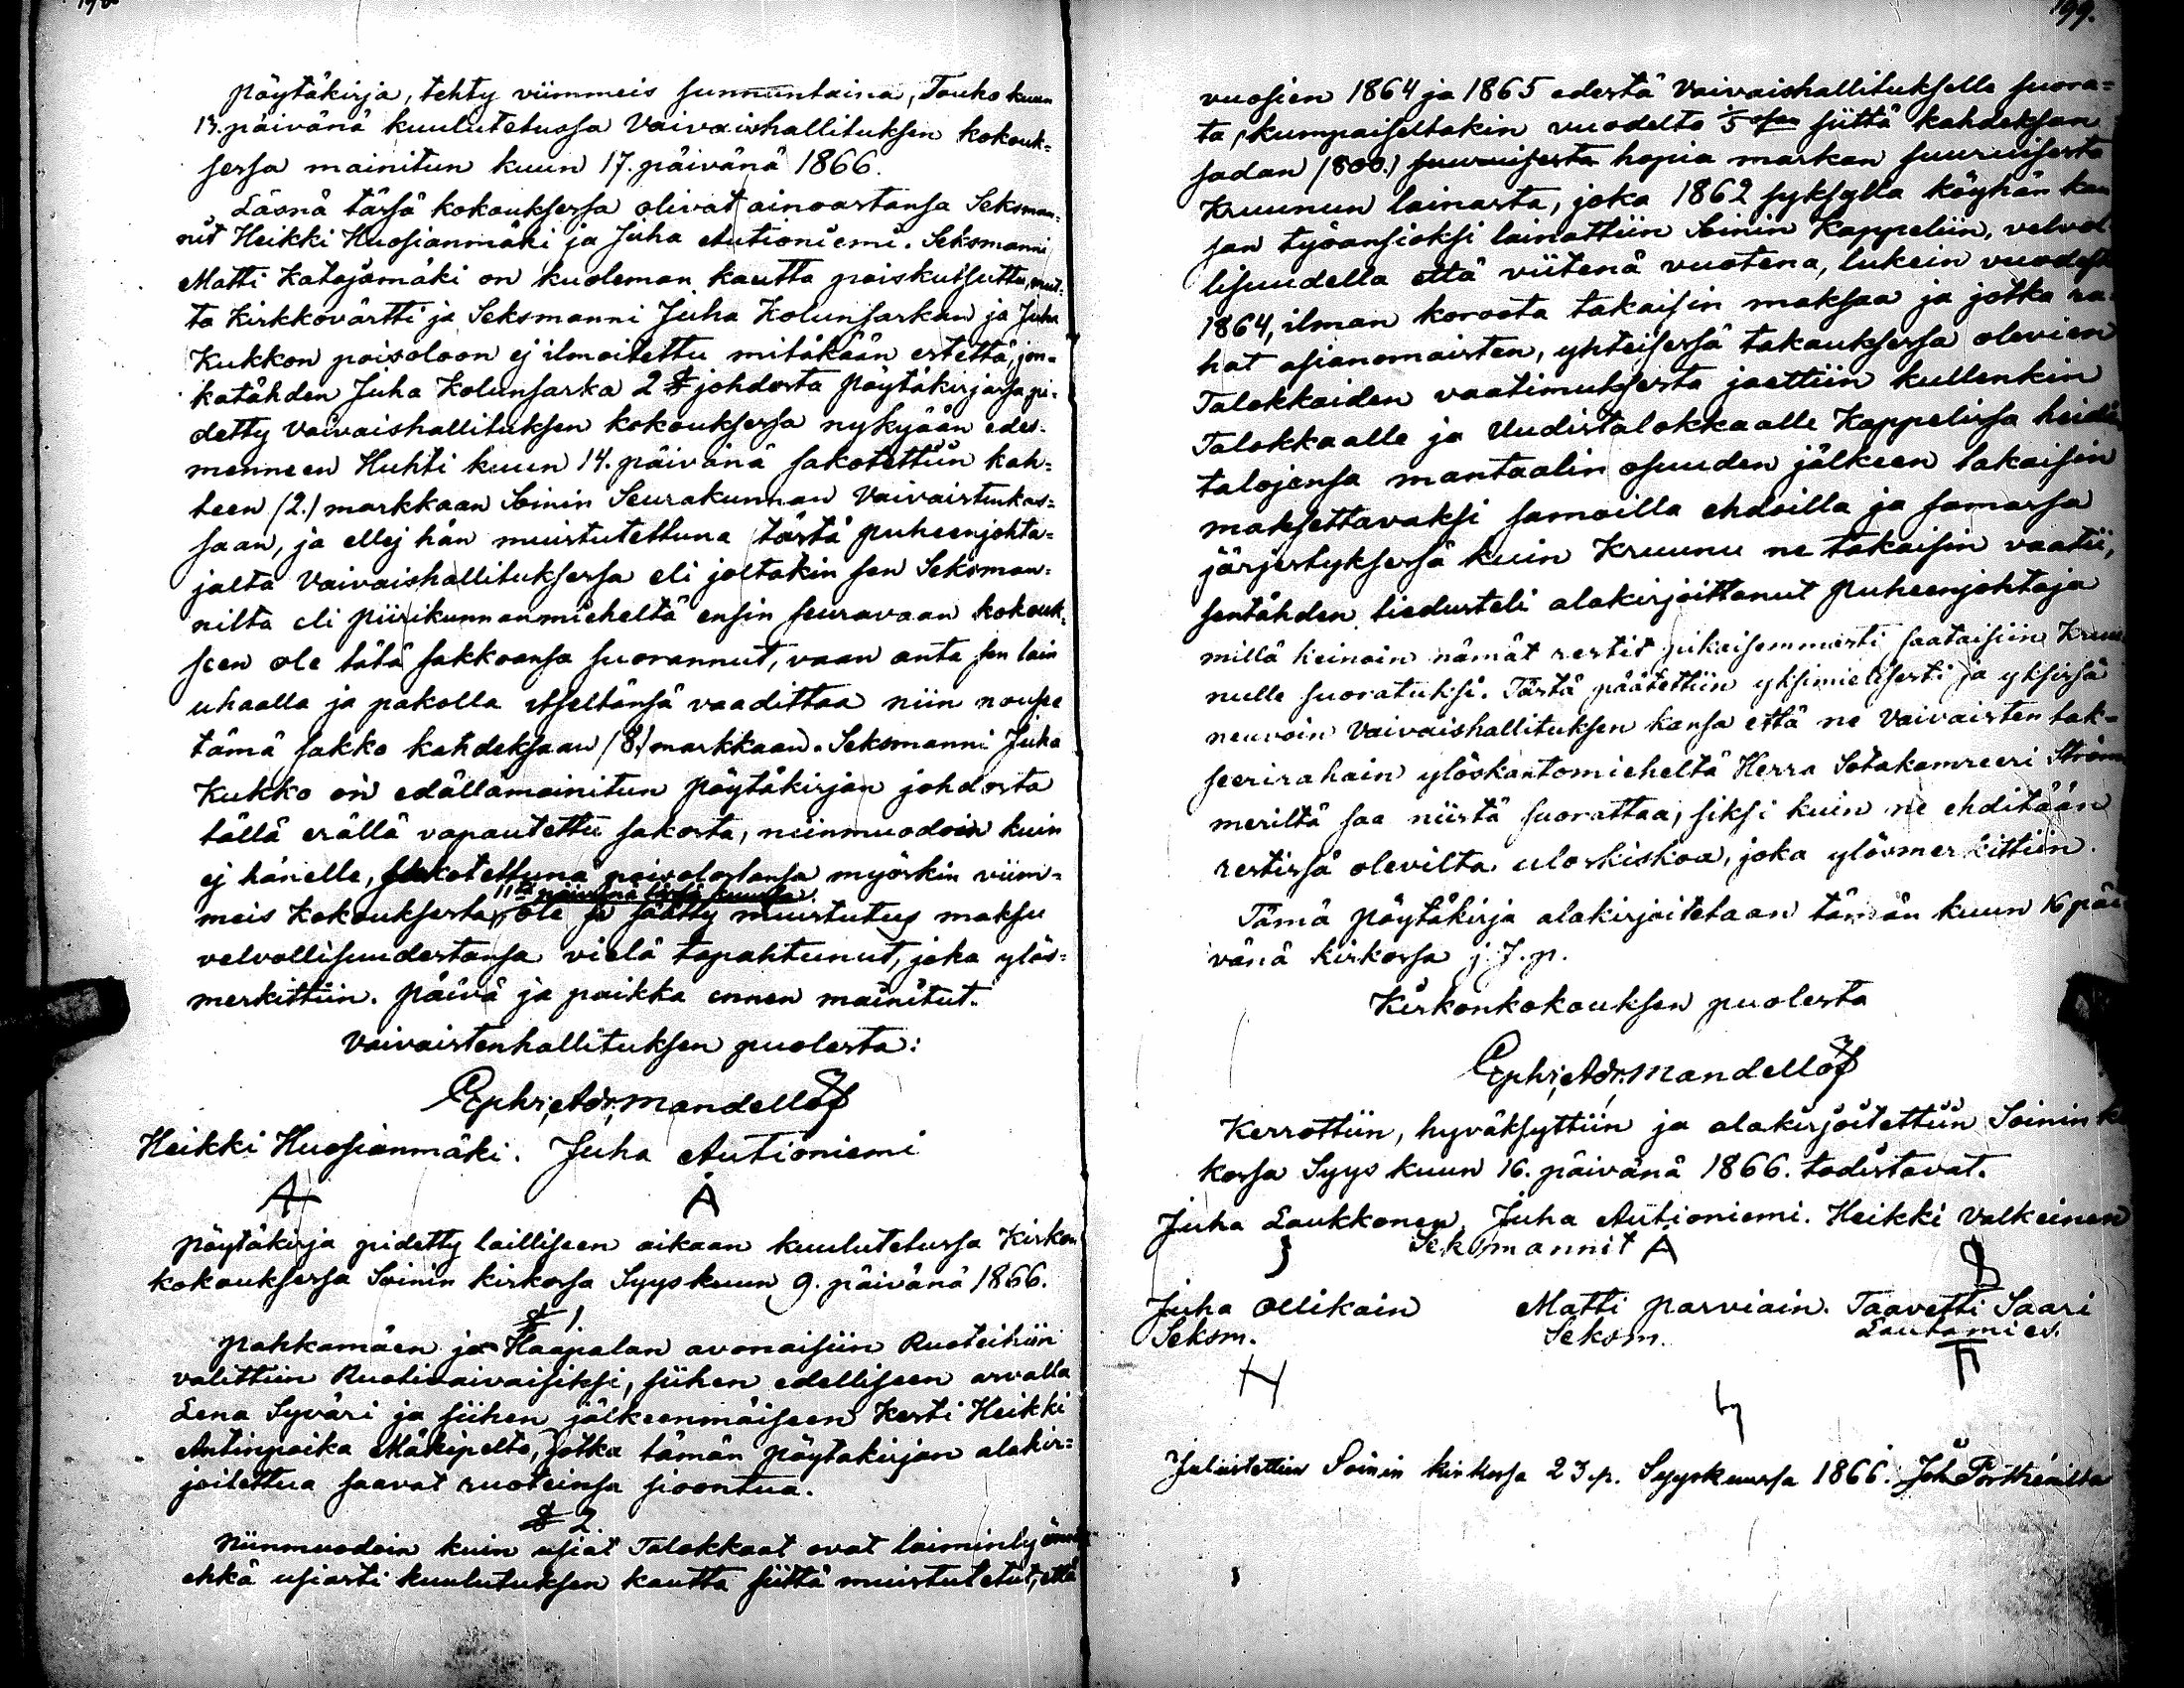 Pöytäkirja, tehty viimmeis sunnuntaina, Touko kuun
13. päivänä kuulutetussa Vaivaishallituksen kokouk=
sessa mainitun kuun 17. päivänä 1866.
Läsnä tässä kokouksessa olivat ainoastansa Seksman=
nit Heikki Huosianmäki ja Juha Autioniemi. Seksmanni
Matti Katajamäki on kuoleman kautta poiskutsuttu, mut=
ta Kirkkovärtti ja Seksmanni Juha Kolunsarkan ja Juha
Kukkon poisoloon ej ilmoitettu mitäkään estettä, jon=
katähden Juha Kolunsarka 2 § johdosta Pöytäkirjassa pi=
detty Vaivaishallituksen kokouksessa nykyään edes=
menneen Huhti kuun 14. päivänä sakotettiin kah=
teen (2.) markkaan Soinin Seurakunnan Vaivaistenkas=
saan, ja ellej hän muistutettuna tästä Puheenjohta=
jalta Vaivaishallituksessa eli joltakin sen Seksman=
nilta eli Piirikunnanmieheltä ensin seuravaan kokouk=
seen ole tätä sakkoansa suorannut, vaan anta sen lain
uhaalla ja pakolla itseltänsä vaadittaa niin noupe
tämä sakko kahdeksaan (8.) markkaan. Seksmanni Juha
Kukko on edällämainitun Pöytäkirjan johdosta
tällä erällä vapautettu sakosta, niinmuodoin kuin
ej hänelle, sakotettuna poisolostansa myöskin viim=
11ta päivänä tässä kuussa
meis Kokouksesta, ole ja säätty muistutus maksu
velvollisuudestansa vielä tapahtunut, joka ylös=
merkittiin. Päivä ja paikka ennen mainitut.
Vaivaistenhallituksen puolesta:
Ephr. Adr. Mandellöf
Heikki Huosianmäki. Juha Autioniemi
Pöytäkirja pidetty lailliseen aikaan kuulutetussa Kirkon
kokouksessa Soinin kirkossa Syyskuun 9. päivänä 1866.
§ 1
Pahkamäen ja Haapalan avonaisiin Ruoteihin
valittiin Ruotivaivaisiksi, siihen edelliseen arvalla
Lena Syväri ja siihen jälkeenmäiseen Kesti Heikki
Antinpoika Mäkipelto, jotka tämän Pöytäkirjan alakir=
joitettua saavat ruoteinsa sioontua.
§ 2
Niinmuodoin kuin usiat Talokkaat ovat laiminlyönet
ehkä usiasti kuulutuksen kautta siittä muistutetut, että
199.
vuosien 1864 ja 1865 edestä Vaivaishallitukselle suora=
ta, kumpaiseltakin vuodelta 1/5 osan siittä kahdeksan
sadan (800.) suuruisesta hopia markan suuruisesta
Kruunun lainasta, joka 1862 syksyllä köyhän kan
san työansioksi lainattiin Soinin Kappeliin, velvol
lisuudella että viitenä vuotena, lukein vuodesta
1864, ilman korosta takaisin maksaa ja jotka ra=
hat asianomaisten, yhteisessä takauksessa olevien
Talokkaiden vaatimuksesta jaettiin kullenkin
Talokkaalle ja Uudistalokkaalle Kappelissa heidän
talojensa mantaalin osuuden jälkeen takaisin
maksettavaksi samoilla ehdoilla ja samassa
järjestyksessä kuin Kruunu ne takaisin vaatii,
sentähden tiedusteli alakirjoittanut Puheenjohtaja
millä keinoin nämät restit pikaisemmasti saataisiin Kruu
nulle suoratuksi. Tästä päätettiin yksimielisesti ja yksissä
neuvoin Vaivaishallituksen kansa että ne Vaivaisten tak=
seerirahain ylöskantomieheltä Herra Sotakamreeri Ström
meriltä saa niistä suorattaa, siksi kuin ne ehditään
restissä olevilta uloskiskoa, joka ylösmerkittiin.
Tämä Pöytäkirja alakirjoitetaan tämän kuun 16 päi
vänä kirkossa j. J. p.
Kirkonkokouksen puolesta
Ephr. Adr. Mandellöf
Kerrottiin, hyväksyttiin ja alakirjoitettiin Soinin
kossa Syys kuun 16. päivänä 1866. todistavat.
Juha Laukkonen. Juha Autioniemi. Heikki Valkeinen
Seksmannit
Juha Ollikain Matti Parviain. Taavetti Saari
Seksm. Seksm. Lautamies.
Julistettiin Soinin kirkossa 23 p. Syyskuussa 1866.